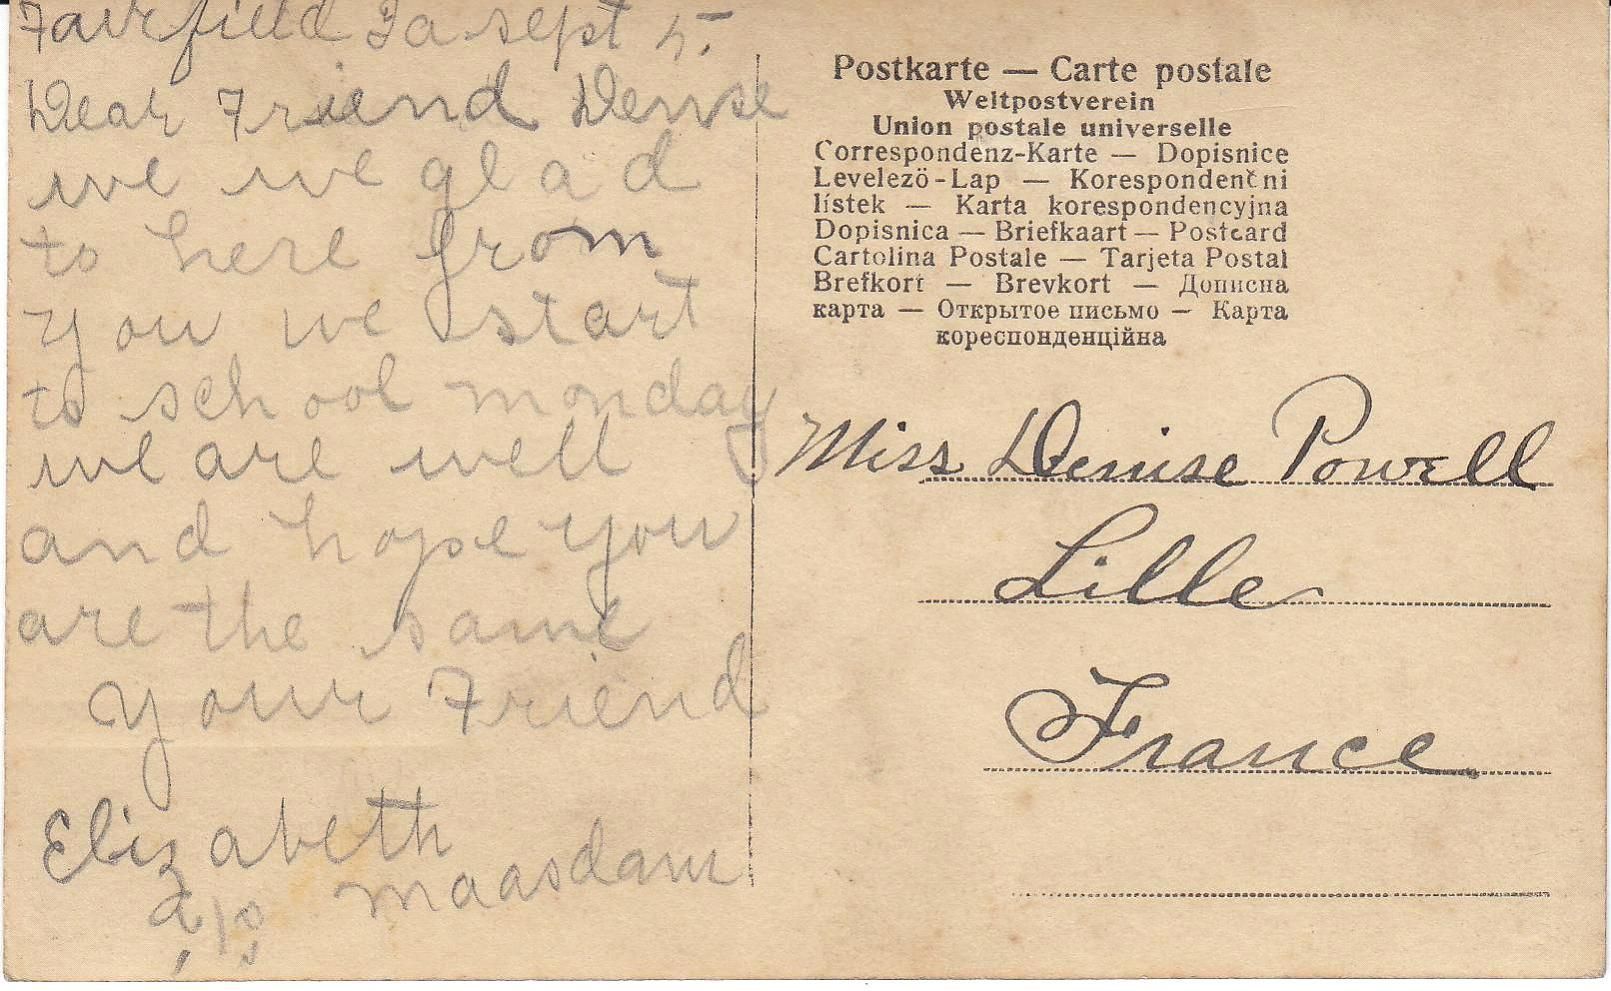 Fairfield Ia sept 5-
Dear Friend Denise
we we glad
to here from
you we start
to school monday
we are well
and hope you
are the same
your Friend
Elizabeth
maasdam
Postkarte — Carte postale
Weltpostverein
Union postale universelle
Correspondenz-Karte — Dopisnice
Levelező-Lap — Korespondenčni
lístek — Karta korespondencyjna
Dopisnica — Briefkaart — Postcard
Cartolina Postale — Tarjeta Postal
Brefkort — Brevkort — Дописна
карта — Открытое письмо — Карта
кореспонденційна
Miss Denise Powell
Lille
France